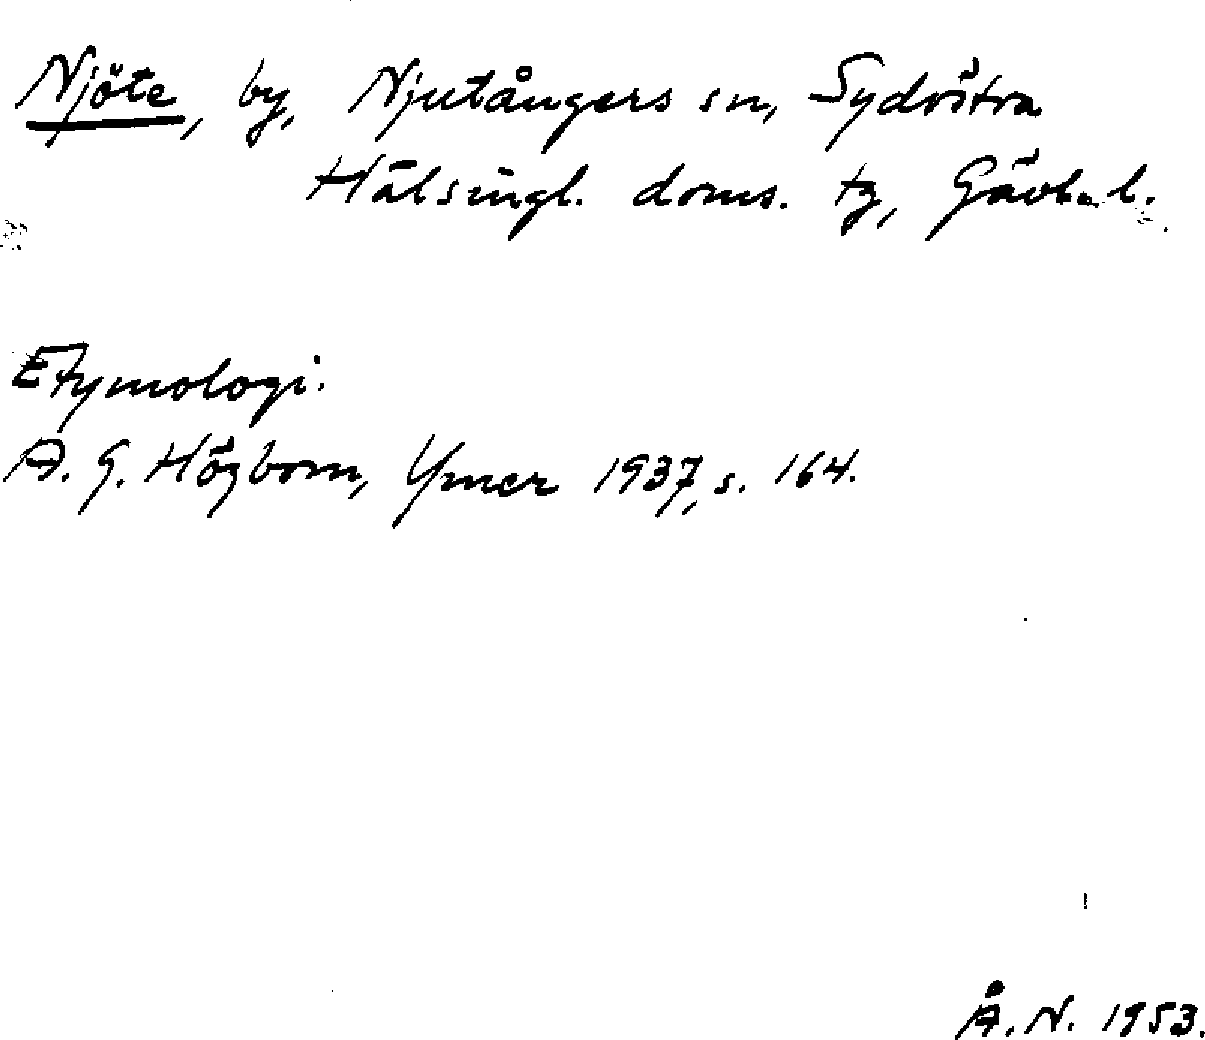 Njöte, by, Njutångers sn, Sydöstra
Hälsingl. doms. tg, Gävleb. l.
Etymologi.
A. G. Högbom, Ymer 1937, s. 164.
Å. N. 1953.